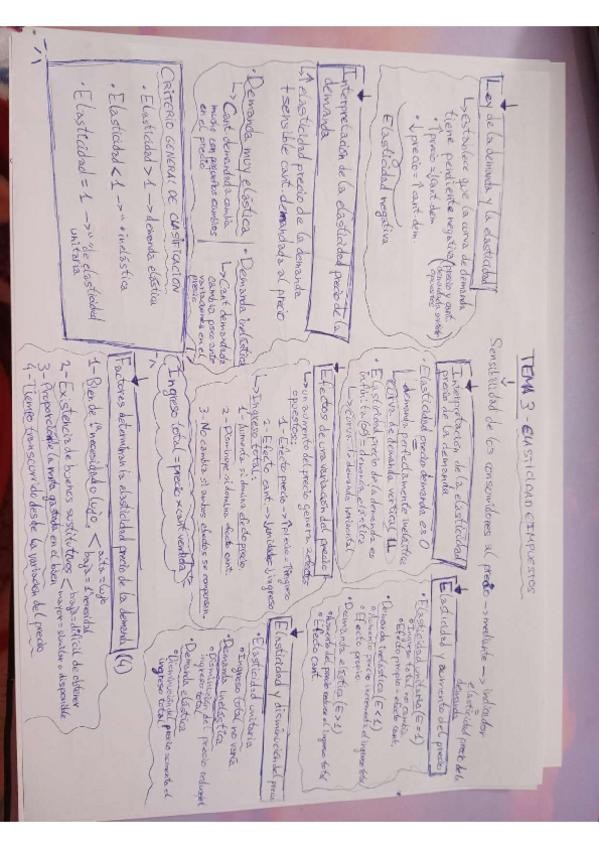 TEMA 3. ELASTICIDAD E IMPUESTOS
Sensibilidad de los consumidores al precio → mediante → indicador
elasticidad precio de la
demanda
Ley de la demanda y la elasticidad
↳ establece que la curva de demanda
tiene pendiente negativa (precio y cant.
demandada
opuestos)
• ↑precio = ↓cant dem
• ↓precio = ↑cant dem
Elasticidad negativa
Interpretación de la elasticidad precio de la
demanda
↳ ↑ elasticidad precio de la demanda
+ sensible cant. demandada al precio
• Demanda muy elástica
↳ Cant demandada cambia
mucho con pequeños cambios
en el precio
• Demanda inelástica
↳ Cant demandada
cambia poco ante
variaciones en el
precio
CRITERIO GENERAL DE CLASIFICACIÓN
• Elasticidad > 1 → demanda elástica
• Elasticidad < 1 → " inelástica
• Elasticidad = 1 → " de elasticidad
unitaria
Interpretación de la elasticidad
precio de la demanda
• Elasticidad precio demanda es 0
↳ demanda perfectamente inelástica
↳ curva de demanda vertical
• Elasticidad precio de la demanda es
infinita (∞) = demanda elástica
↳ curva de demanda horizontal
Efectos de una variación del precio
↳ un aumento del precio genera 2 efectos
opuestos:
1- Efecto precio → ↑precio = ↑ingreso
2- Efecto cant → ↓unidades = ↓ingreso
↳ Ingreso total:
1- Aumenta si domina efecto precio.
2- Disminuye si domina efecto cant.
3- No cambia si ambos efectos se compensan.
Ingreso total = precio x cant vendida
Factores determinan la elasticidad precio de la demanda (4)
1- Bien de 1ª necesidad o lujo. < alta = lujo
baja = 1ª necesidad
2- Existencia de buenos sustitutivos < baja = difícil de obtener
mayor = similar o disponible
3- Proporción de la renta gastada en el bien
4- Tiempo transcurrido desde la variación del precio
Elasticidad y aumento del precio
• Elasticidad unitaria (E=1)
• Ingreso total no cambia
• Efecto precio = efecto cant.
• Demanda inelástica (E<1)
• Aumento precio incrementa el ingreso total
• Efecto precio
• Demanda elástica (E>1)
• Aumento del precio reduce el ingreso total
• Efecto cant
Elasticidad y disminución del precio
• Elasticidad unitaria
• Ingreso total no varía
• Demanda inelástica
• Disminución del precio reduce el
ingreso total
• Demanda elástica
• Disminución del precio aumenta el
ingreso total